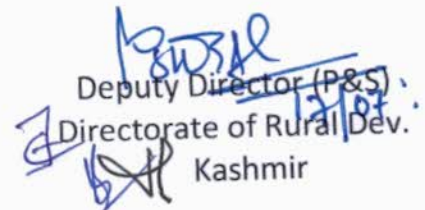 Deputy Director (P&S)
17/07
Directorate of Rural Dev.
Kashmir